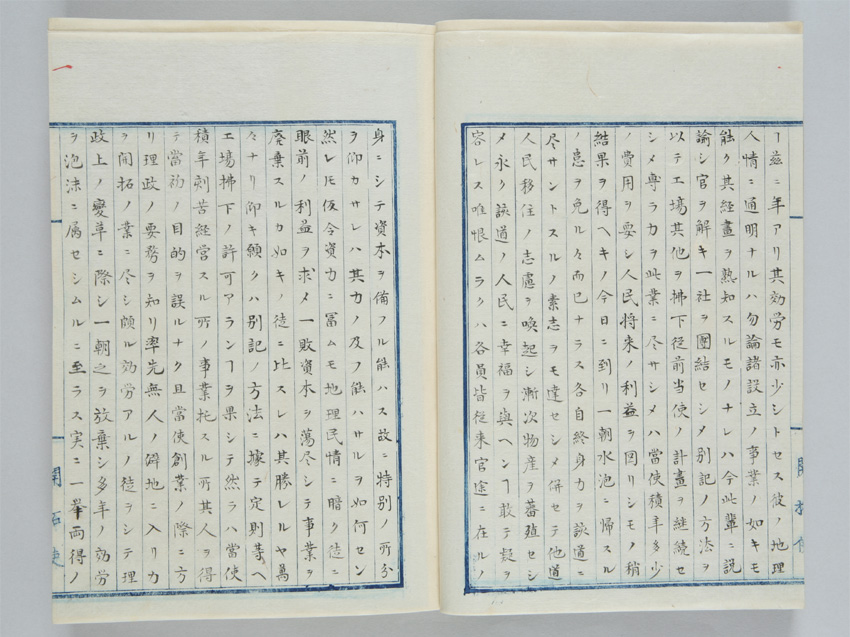 ヿ茲ニ年アリ其効労モ亦少シトセス彼ノ地理
人情ニ通明ナルハ勿論諸設立ノ事業ノ如キモ
能ク其経畫ヲ熟知スルモノナレハ今此輩ニ説
諭シ官ヲ解キ一社ヲ團結セシメ別記ノ方法ヲ
以テ工場其他ヲ拂下従前当使ノ計畫ヲ継続セ
シメ専ラ力ヲ此業ニ尽サシメハ當使積年多少
ノ費用ヲ要シ人民将来ノ利益ヲ図リシモノ稍
結果ヲ得ヘキノ今日ニ到リ一朝水泡ニ帰スル
ノ患ヲ免ルヽ而已ナラス各自終身力ヲ該道ニ
尽サントスルノ素志ヲモ達セシメ併セテ他道
人民移住ノ志慮ヲ喚起シ漸次物産ヲ蕃殖セシ
メ永ク該道ノ人民ニ幸福ヲ與ヘンヿ敢テ疑ヲ
容レス唯恨ムラクハ各員皆従来官途ニ在ルノ
開拓使
身ニシテ資本ヲ備フル能ハス故ニ特別ノ所分
ヲ仰カサレハ其力ノ及フ能ハサルヲ如何セン
然レ𪜈仮令資力ニ冨ムモ地理民情ニ暗ク徒ニ
眼前ノ利益ヲ求メ一敗資本ヲ蕩尽シテ事業ヲ
廃棄スルカ如キノ徒ニ比スレハ其勝レルヤ萬
々ナリ仰キ願クハ別記ノ方法ニ據テ定則等ヘ
工場拂下ノ許可アランヿヲ果シテ然ラハ當使
積年刻苦経営スル所ノ事業托スル所其人ヲ得
テ當初ノ目的ヲ誤ルナク且當使創業ノ際ニ方
リ理政ノ要務ヲ知リ率先無人ノ僻地ニ入リ力
ヲ開拓ノ業ニ尽シ頗ル効労アルノ徒ヲシテ理
政上ノ變革ニ際シ一朝之ヲ放棄シ多年ノ効労
ヲ泡沫ニ属セシムルニ至ラス実ニ一挙両得ノ
開拓使